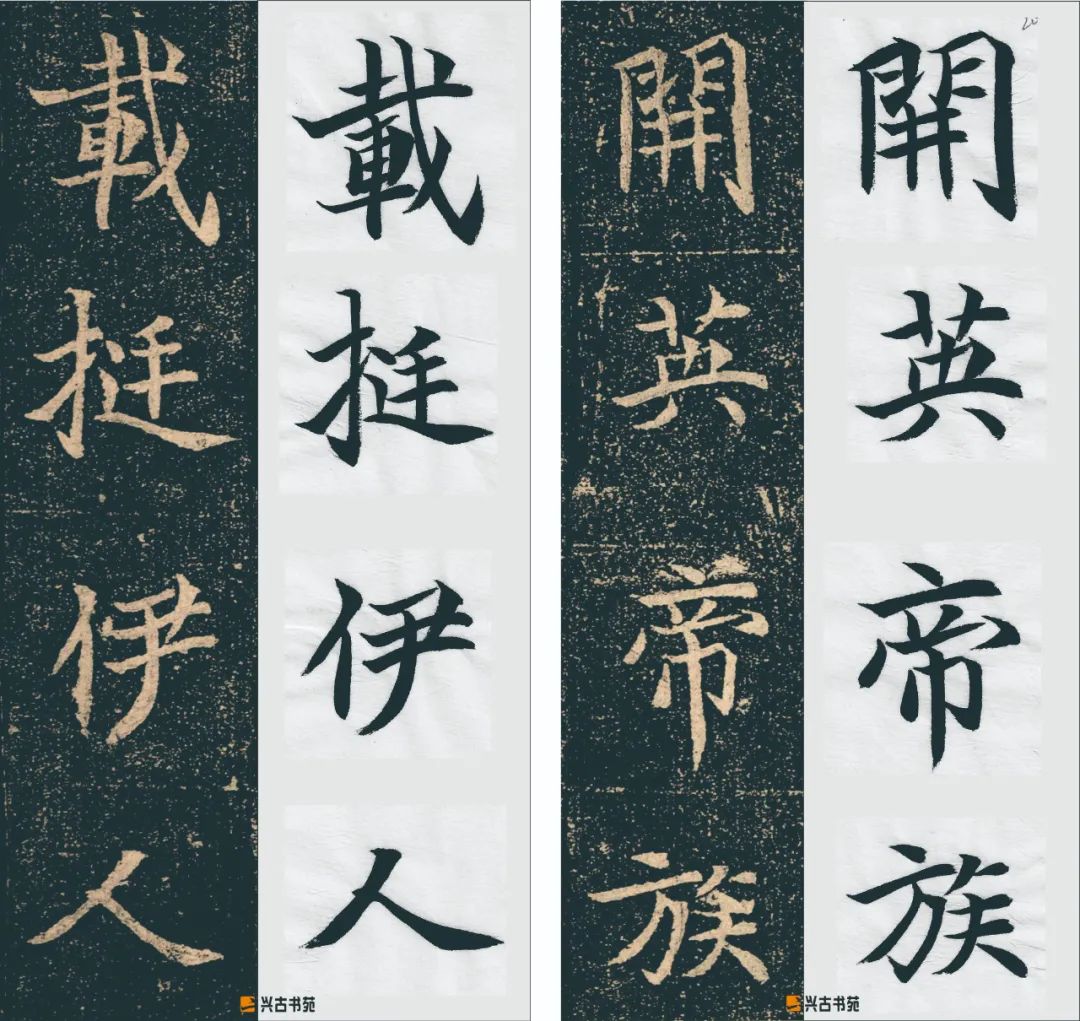 載挺伊人
載挺伊人
兴古书苑
開英帝族
開英帝族
兴古书苑